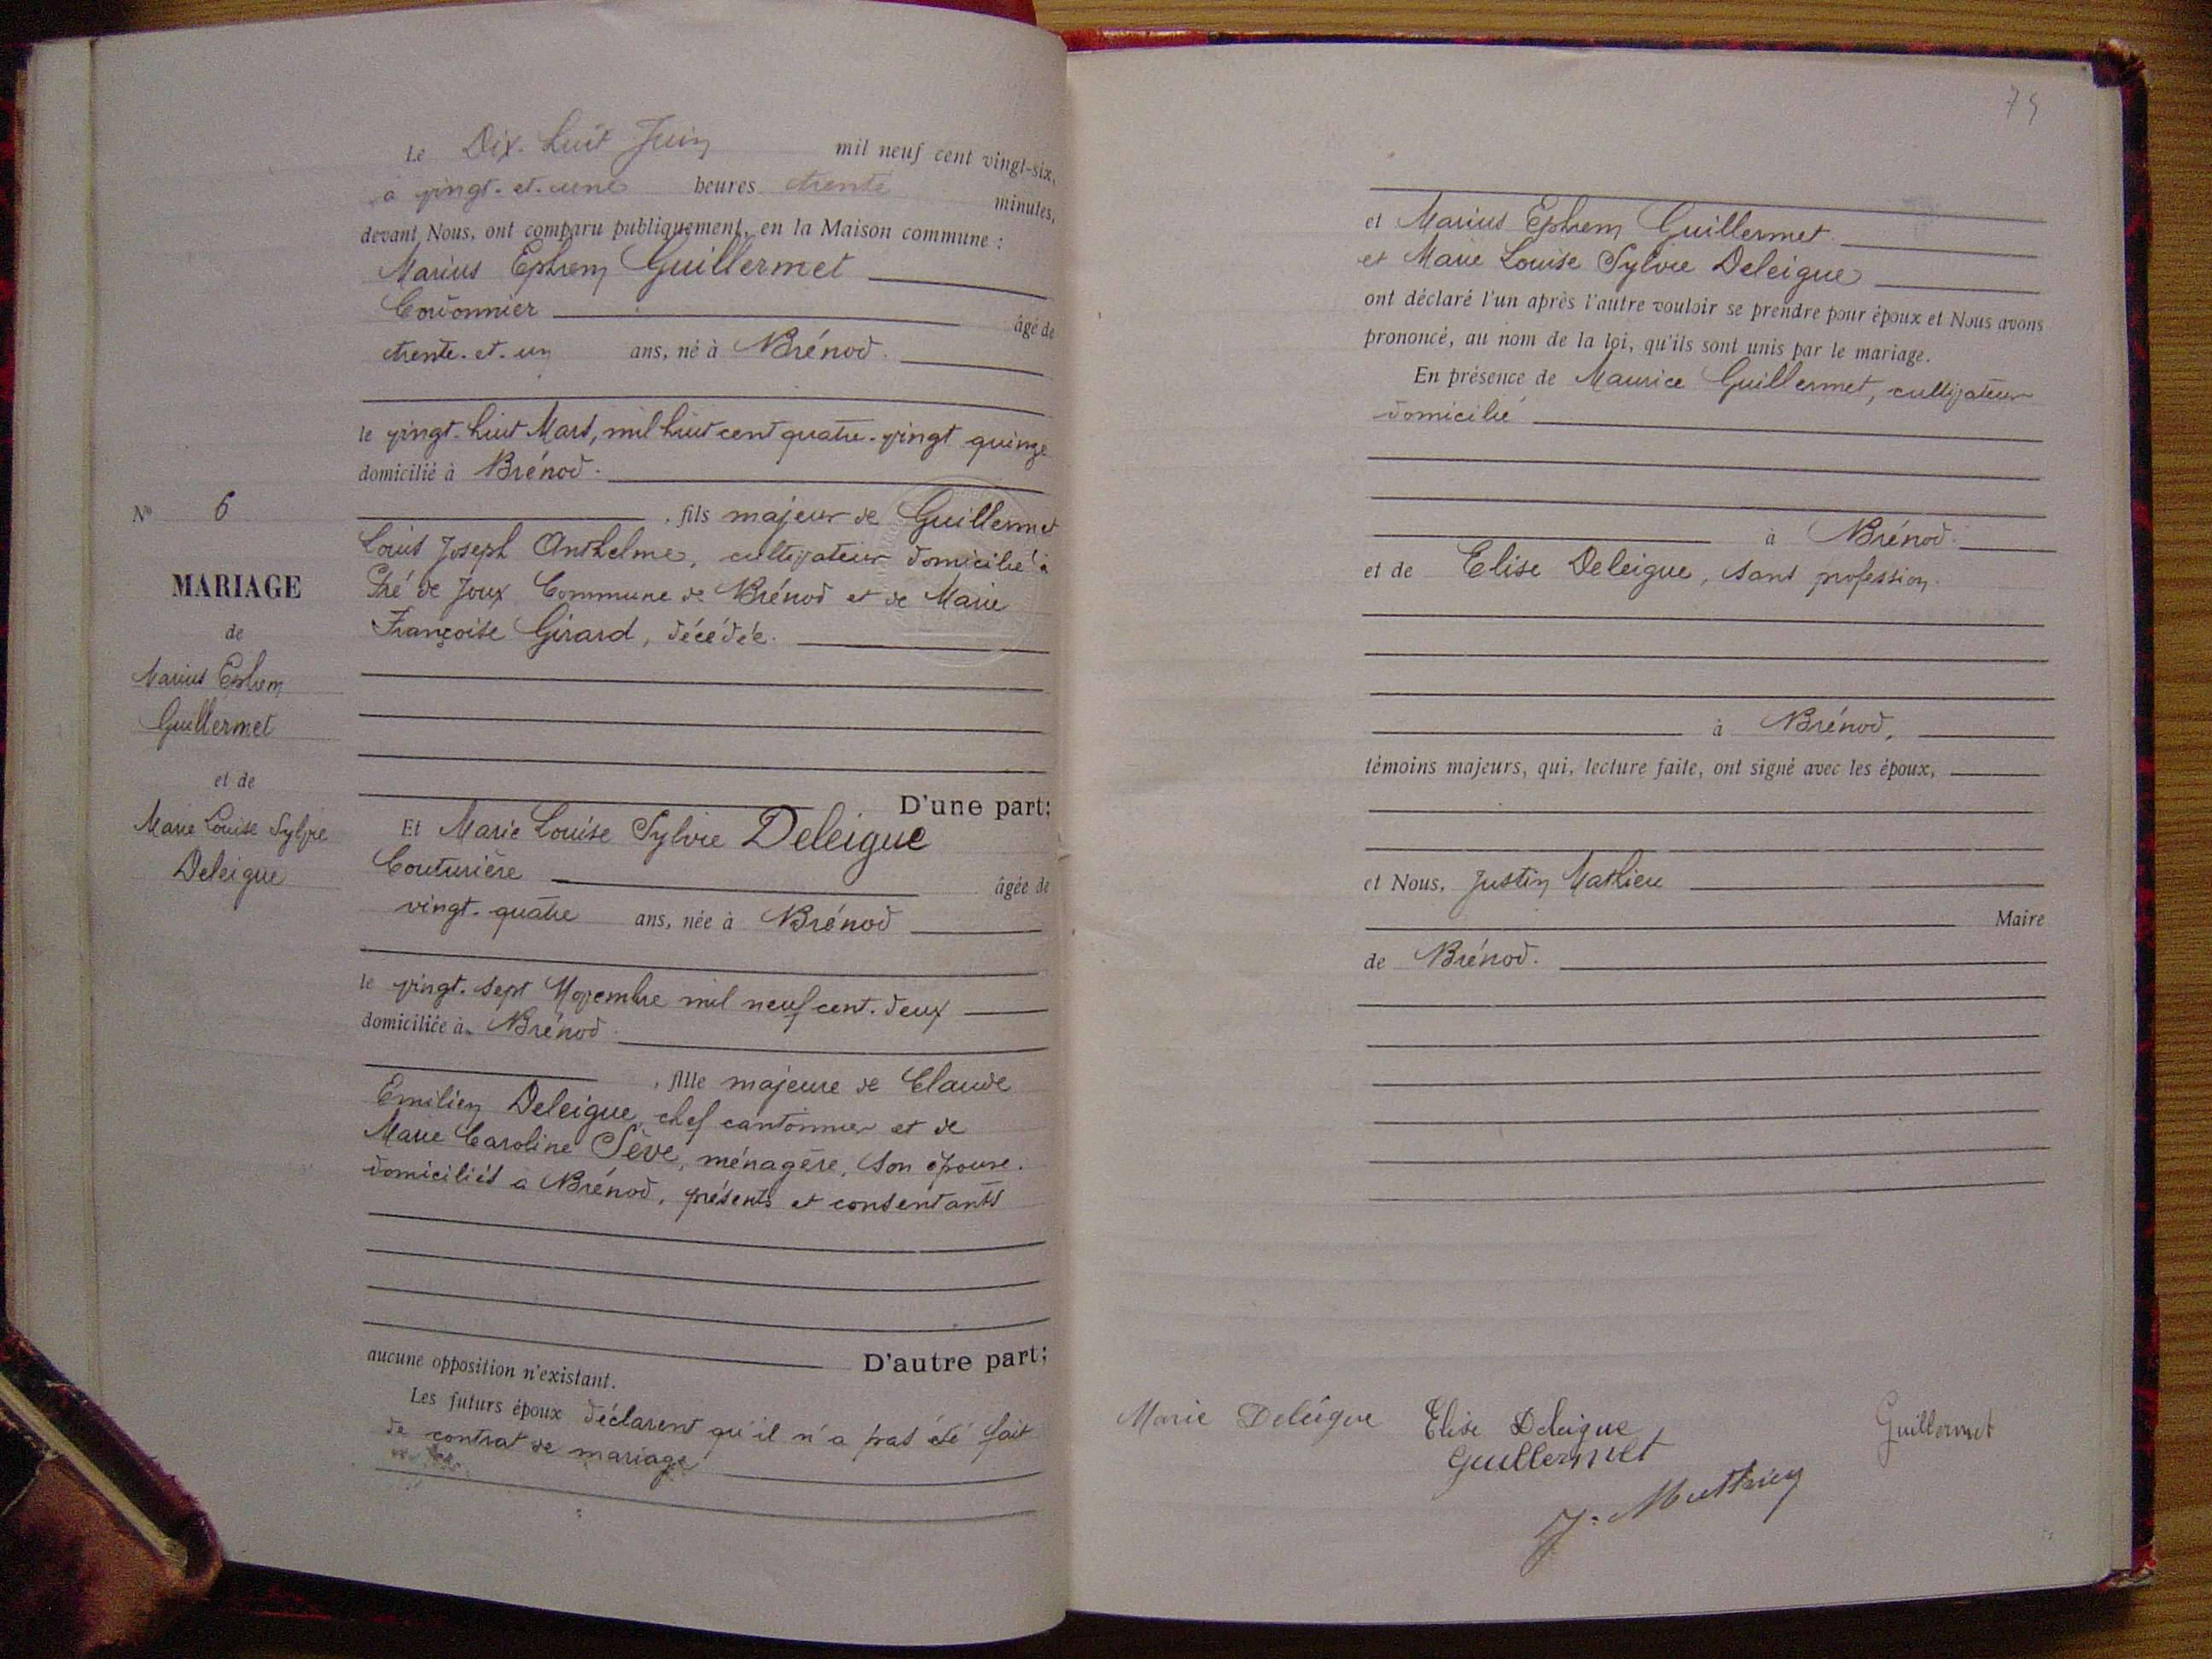 Le Dix-huit Juin mil neuf cent vingt-six,
à vingt-et-une heures trente minutes,
devant Nous, ont comparu publiquement, en la Maison commune :
Marius Ephrem Guillermet
Cordonnier âgé de
trente-et-un ans, né à Brénod.
le vingt-huit Mars, mil huit cent quatre-vingt quinze
domicilié à Brénod.
, fils majeur de Guillermet
Louis Joseph Anthelme, cultivateur domicilié à
Pré de Joux Commune de Brénod et de Marie
Françoise Girard, décédée.
D'une part;
Et Marie Louise Sylvie Deleigue
Couturière âgée de
vingt-quatre ans, née à Brénod
le vingt-sept Novembre mil neuf cent-deux
domiciliée à Brénod.
, fille majeure de Claude
Emilien Deleigue, chef cantonnier et de
Marie Caroline Sève, ménagère, son épouse.
domiciliés à Brénod, présents et consentants
D'autre part;
aucune opposition n'existant.
Les futurs époux déclarent qu'il n'a pas été fait
de contrat de mariage
N° 6
MARIAGE
de
Marius Ephrem
Guillermet
et de
Marie Louise Sylvie
Deleigue
et Marius Ephrem Guillermet
et Marie Louise Sylvie Deleigue
ont déclaré l'un après l'autre vouloir se prendre pour époux et Nous avons
prononcé, au nom de la loi, qu'ils sont unis par le mariage.
En présence de Maurice Guillermet, cultivateur
domicilié
à Brénod.
et de Elise Deleigue, sans profession.
à Brénod,
témoins majeurs, qui, lecture faite, ont signé avec les époux,
et Nous, Justin Mathieu
Maire
de Brénod.
Marie Deleigue Elise Deleigue Guillermet
Guillermet
J. Mathieu